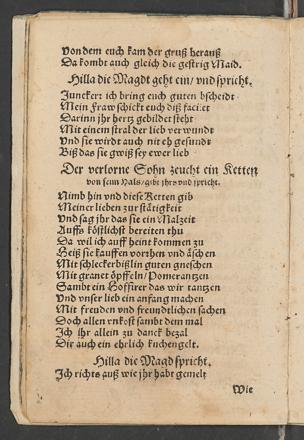 Von dem euch kam der gruß herauß
Da kombt auch gleich die gestrig Maid.
Hilla die Magdt geht ein/ vnd spricht.
Junckher ich bring euch guten bscheidt
Mein Fraw schickt euch diß facilet
Darinn jhr hertz gebildet steht
Mit einem stral der lieb verwundt
Vnd sie wirdt auch nit eh gesundt
Biß das sie gwiß sey ewer lieb
Der verlorne Sohn zeucht ein Ketten
von seim Hals/ gibt jhrs vnd spricht.
Nimb hin vnd diese Ketten gib
Meiner lieben zur stätigkeit
Vnd sag jhr das sie ein Malzeit
Auffs köstlichst bereiten thu
Da wil ich auff heint kommen zu
Heiß sie kauffen vorhen vnd äschen
Mit schleckerbißlin guten gneschen
Mit granet öpffeln/ Pomerantzen
Sambt ein Hoffirer das wir tantzen
Vnd vnser lieb ein anfang machen
Mit freuden vnd freundtlichen sachen
Doch allen vnkost sambt dem mal
Ich jhr allein zu danck bezal
Dir auch ein ehrlich kuchengelt.
Hilla die Magd spricht.
Ich richts auß wie jhr habt gemelt
Wie